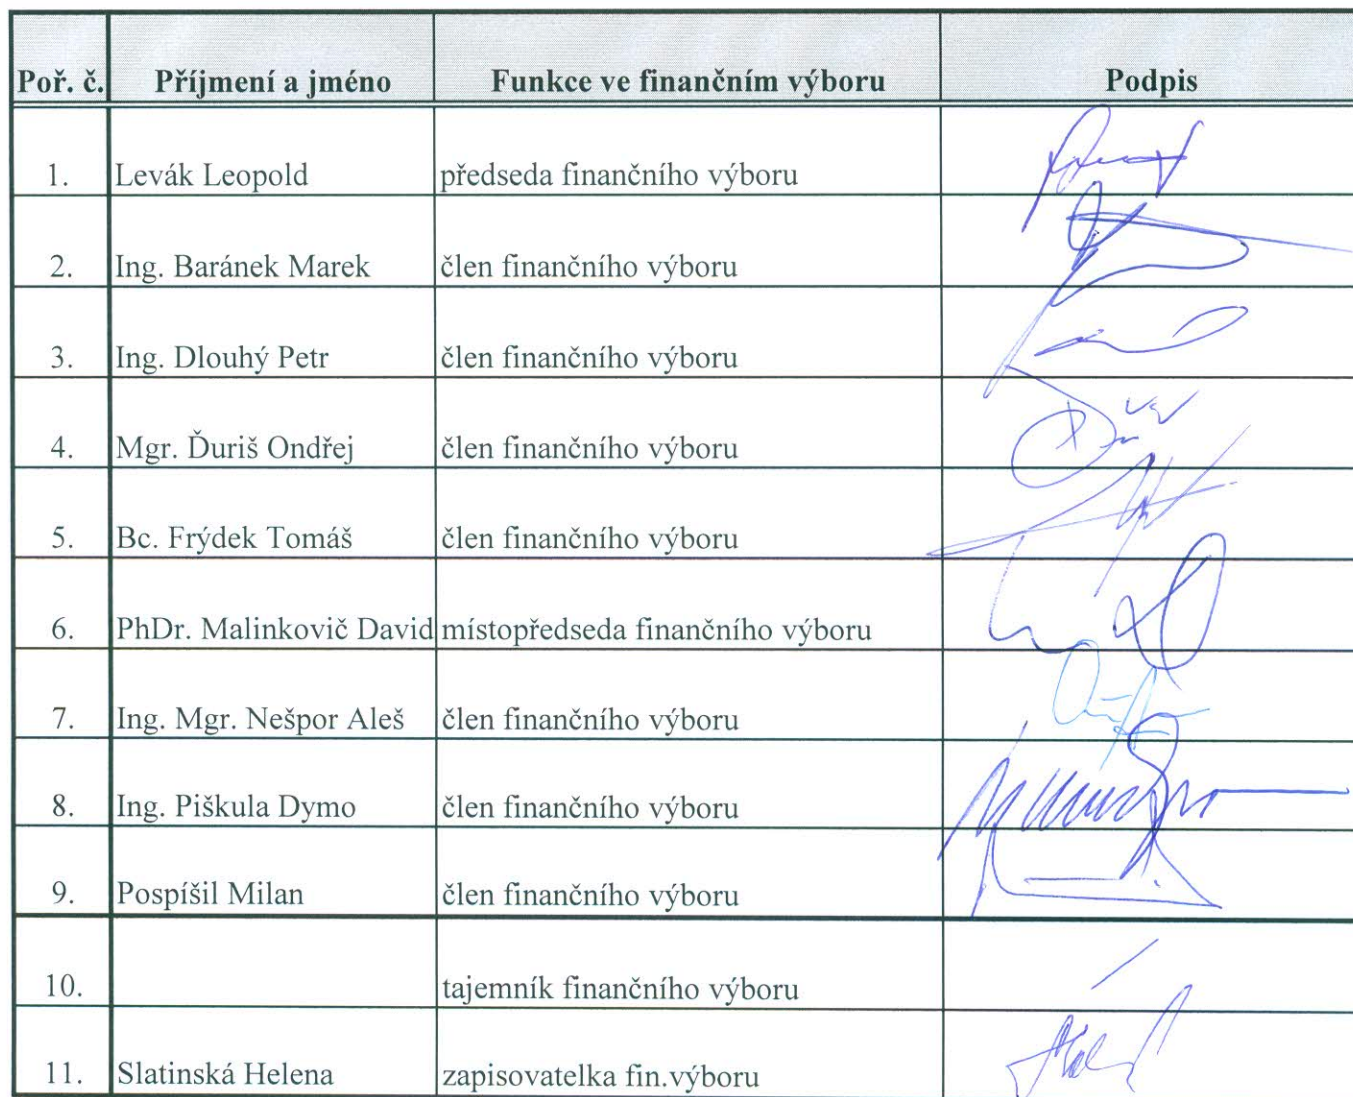 Poř. č. Příjmení a jméno Funkce ve finančním výboru Podpis
1. Levák Leopold předseda finančního výboru
2. Ing. Baránek Marek člen finančního výboru
3. Ing. Dlouhý Petr člen finančního výboru
4. Mgr. Ďuriš Ondřej člen finančního výboru
5. Bc. Frýdek Tomáš člen finančního výboru
6. PhDr. Malinkovič David místopředseda finančního výboru
7. Ing. Mgr. Nešpor Aleš člen finančního výboru
8. Ing. Piškula Dymo člen finančního výboru
9. Pospíšil Milan člen finančního výboru
10. tajemník finančního výboru
11. Slatinská Helena zapisovatelka fin.výboru